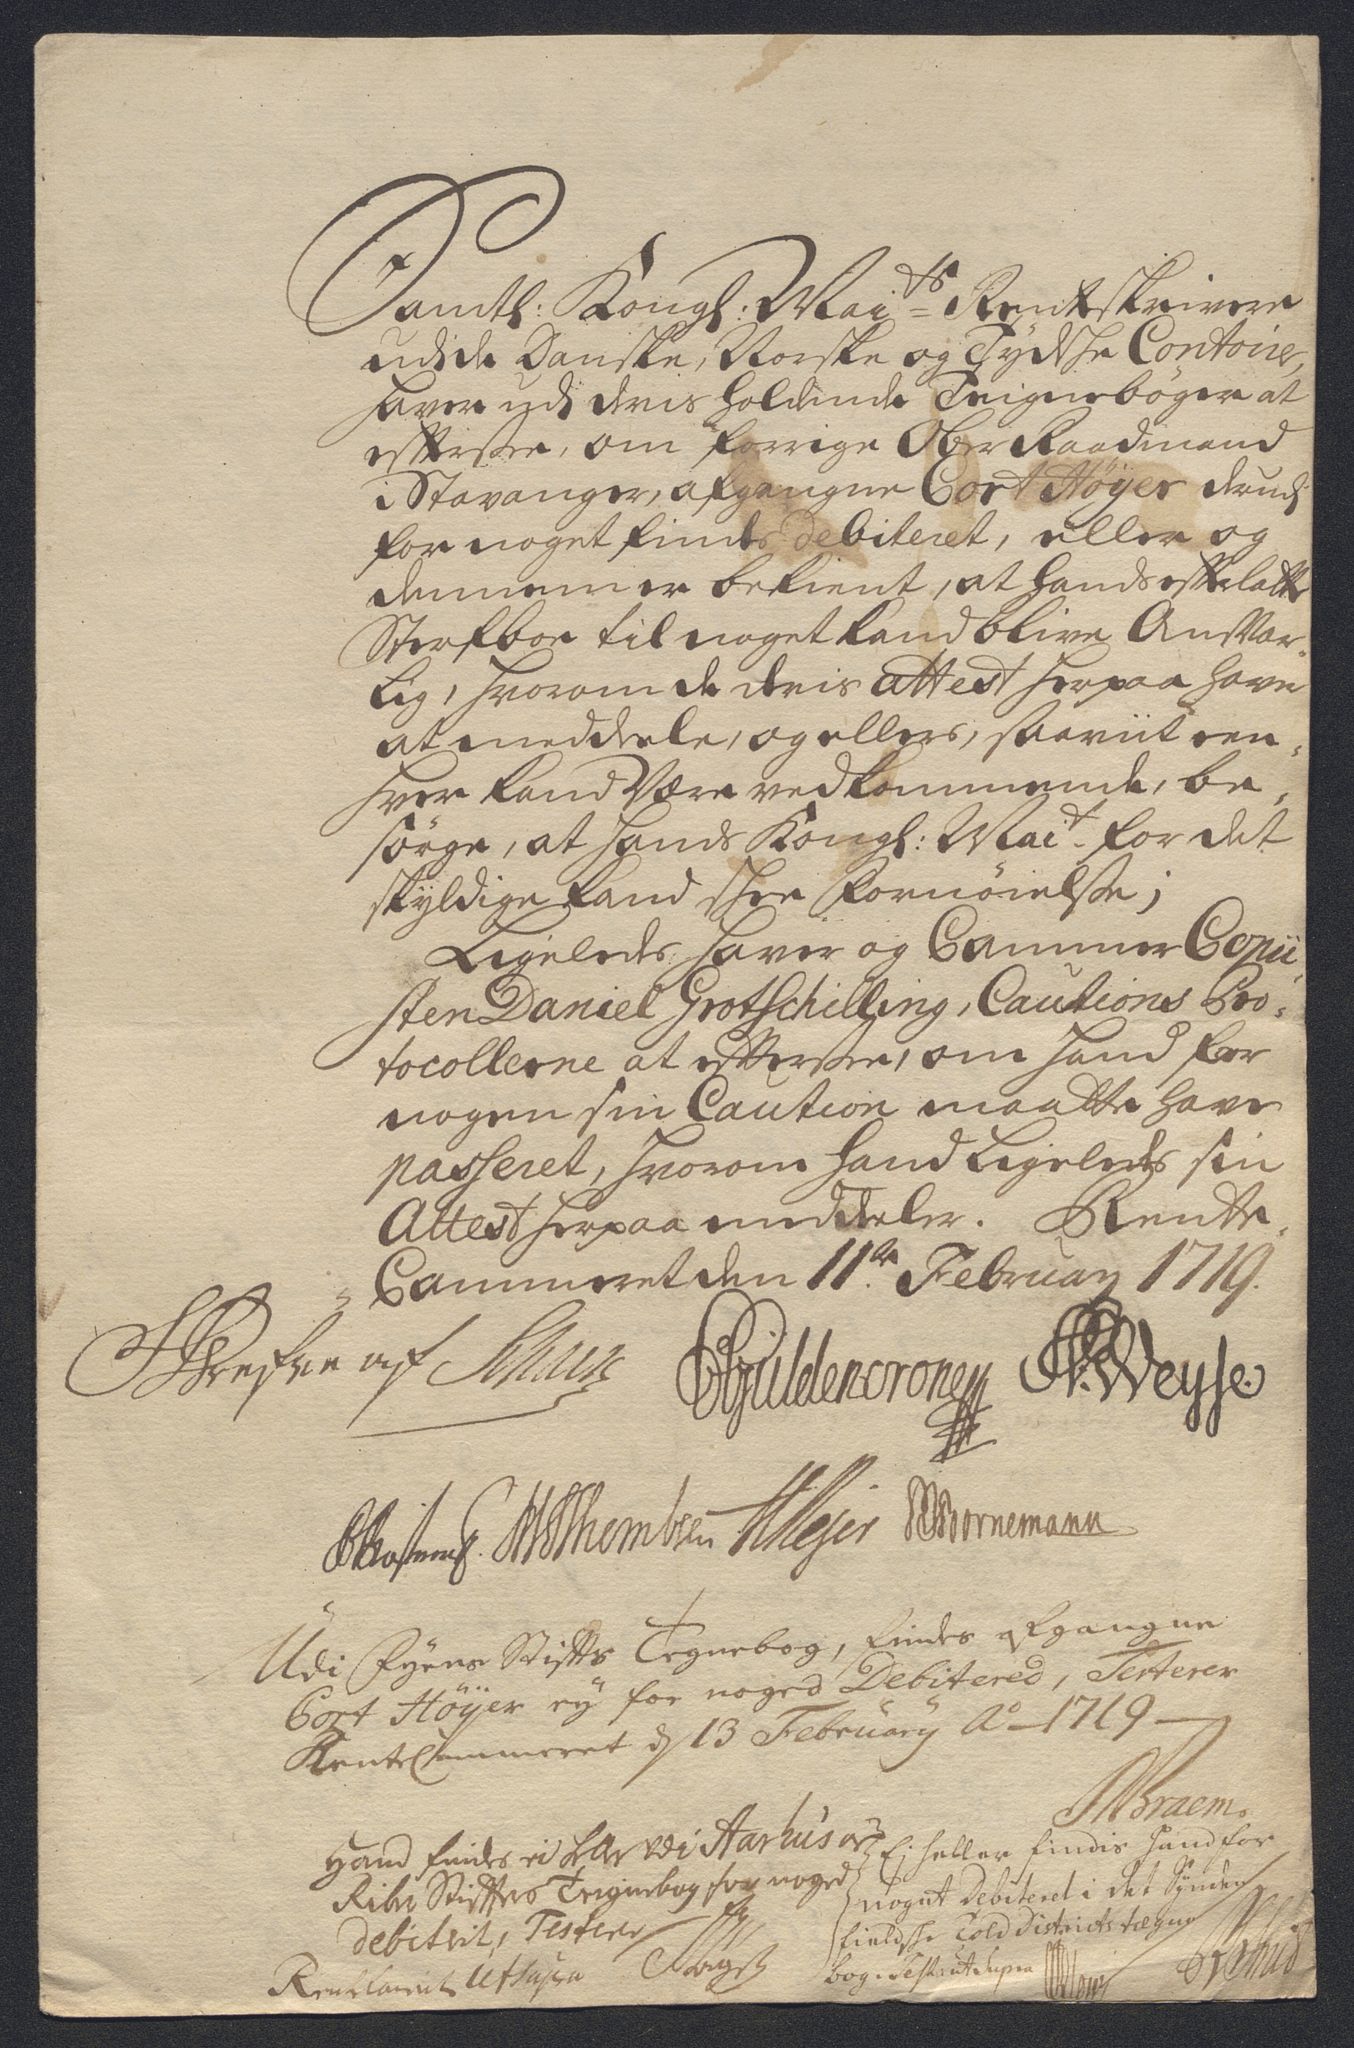 Samtl: Kongl: Mai^ts Renteskrivere
udi de Danske, Norske og Tydske Contoirer,
haver udi deris holdende Teignebøger at
eftersee, om forrige Ober Raadmand
i Stavanger, afgangne Cort Höyer derudi
for noget findes debiteret, eller og
dennem er bekient, at hands efterladte
Sterfboe til noget kand blive Ansvar-
lig, hvorom de deris attest herpaa have
at meddele, og ellers, saaviit een-
hver kand være vedkommende, be-
sørge, at hands Kongl: Mai^t for det
skyldige kand skee Fornöielse;
Ligeleds haver og Cammer Copii-
sten Daniel Grotschilling, Cautions Pro-
tocollerne at eftersee, om hand for
nogen sin Caution maatte have
passeret, hvorom hand ligeleds sin
Attest herpaa meddeler. Rente-
Cammeret den 11te February 1719.
af Güldencrone Weyse
Thombsen Meyer Bornemann
Udi Fyens Stifts Tegnebog, findes afgangne
Cort Höyer ey for noged Debitered, Testerer
RenteCammeret d 13 February A° 1719
Braem
Hand findes ei heller udi Aarhus og
Ribe Stifters Teignebog for noged
debiterit, Testerer
Rentecamerit Ut supra
Ej heller findis hand for
noget Debiteret i det Synden
fieldske Told Districts tegne
bog. Testerer ut supra